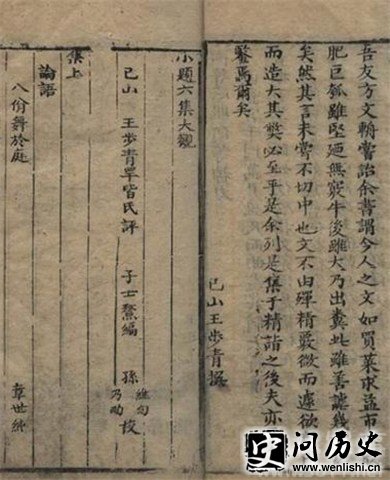 吾友方文輈嘗詒余書謂今人之文如買菜求益市
肥巨瓠雖堅廼無竅牛後雖大乃出糞此雖善謔幾
矣然其言未嘗不切中也文不由殫精覈微而遽欲
而造大其獘必至乎是余列是集于精詣之後夫亦
鑒焉爾矣
已山王步青撰
小題六集大觀
已山 王步青罕皆民評 子士鰲編 孫 維甸 乃昀 校
集上
論語
八佾舞於庭
章世純
问历史
www.wenlishi.cn